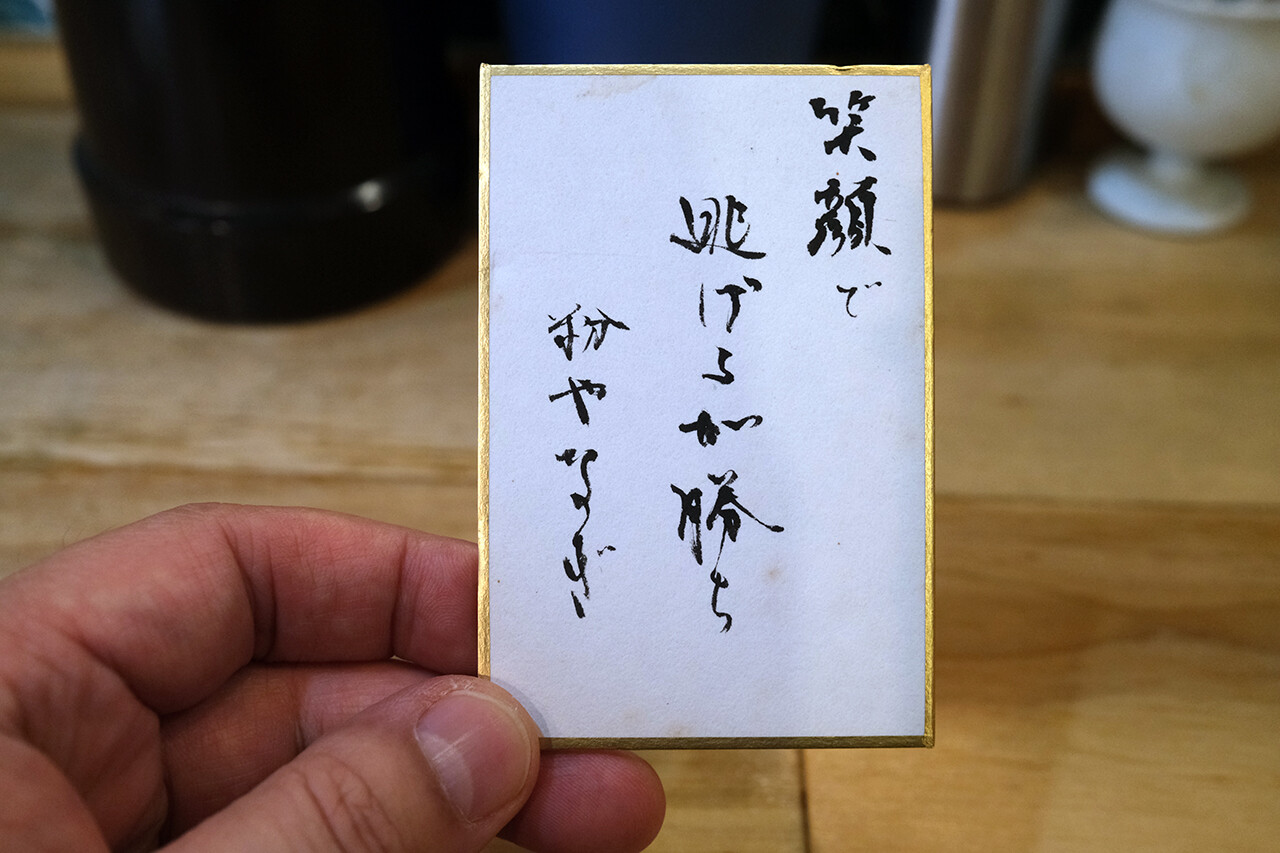 笑顔で
逃げるが勝ち
粉やなぎ